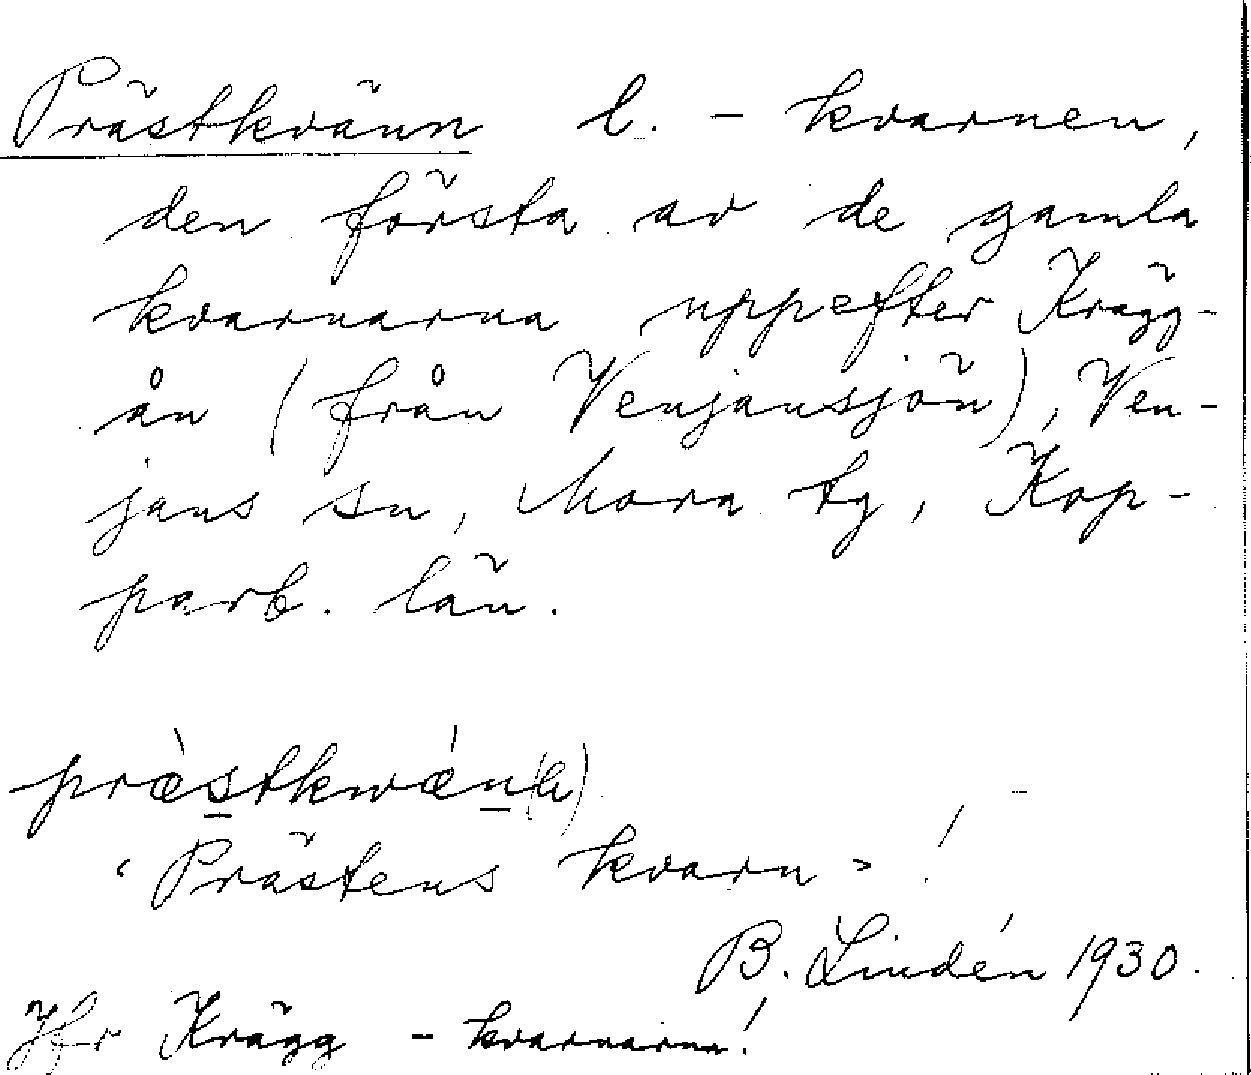 Prästkvänn l. - kvarnen,
den första av de gamla
kvarnarna uppefter Krägg-
ån (från Venjansjön), Ven-
jans sn, Mora tg, Kop-
parb. län.
præ̀stkwǽn(h)
‹ Prästens kvarn › !
B. Lindén 1930.
Jfr Krägg - kvarnarna!